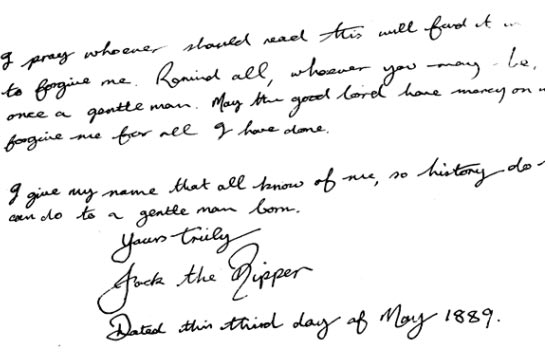 I pray whoever should read this will find it in
to forgive me. Remind all, whoever you may be,
once a gentle man. May the good lord have mercy on
forgive me for all I have done.
I give my name that all know of me, so history do
can do to a gentle man born.
Yours truly
Jack the Ripper
Dated this third day of May 1889.